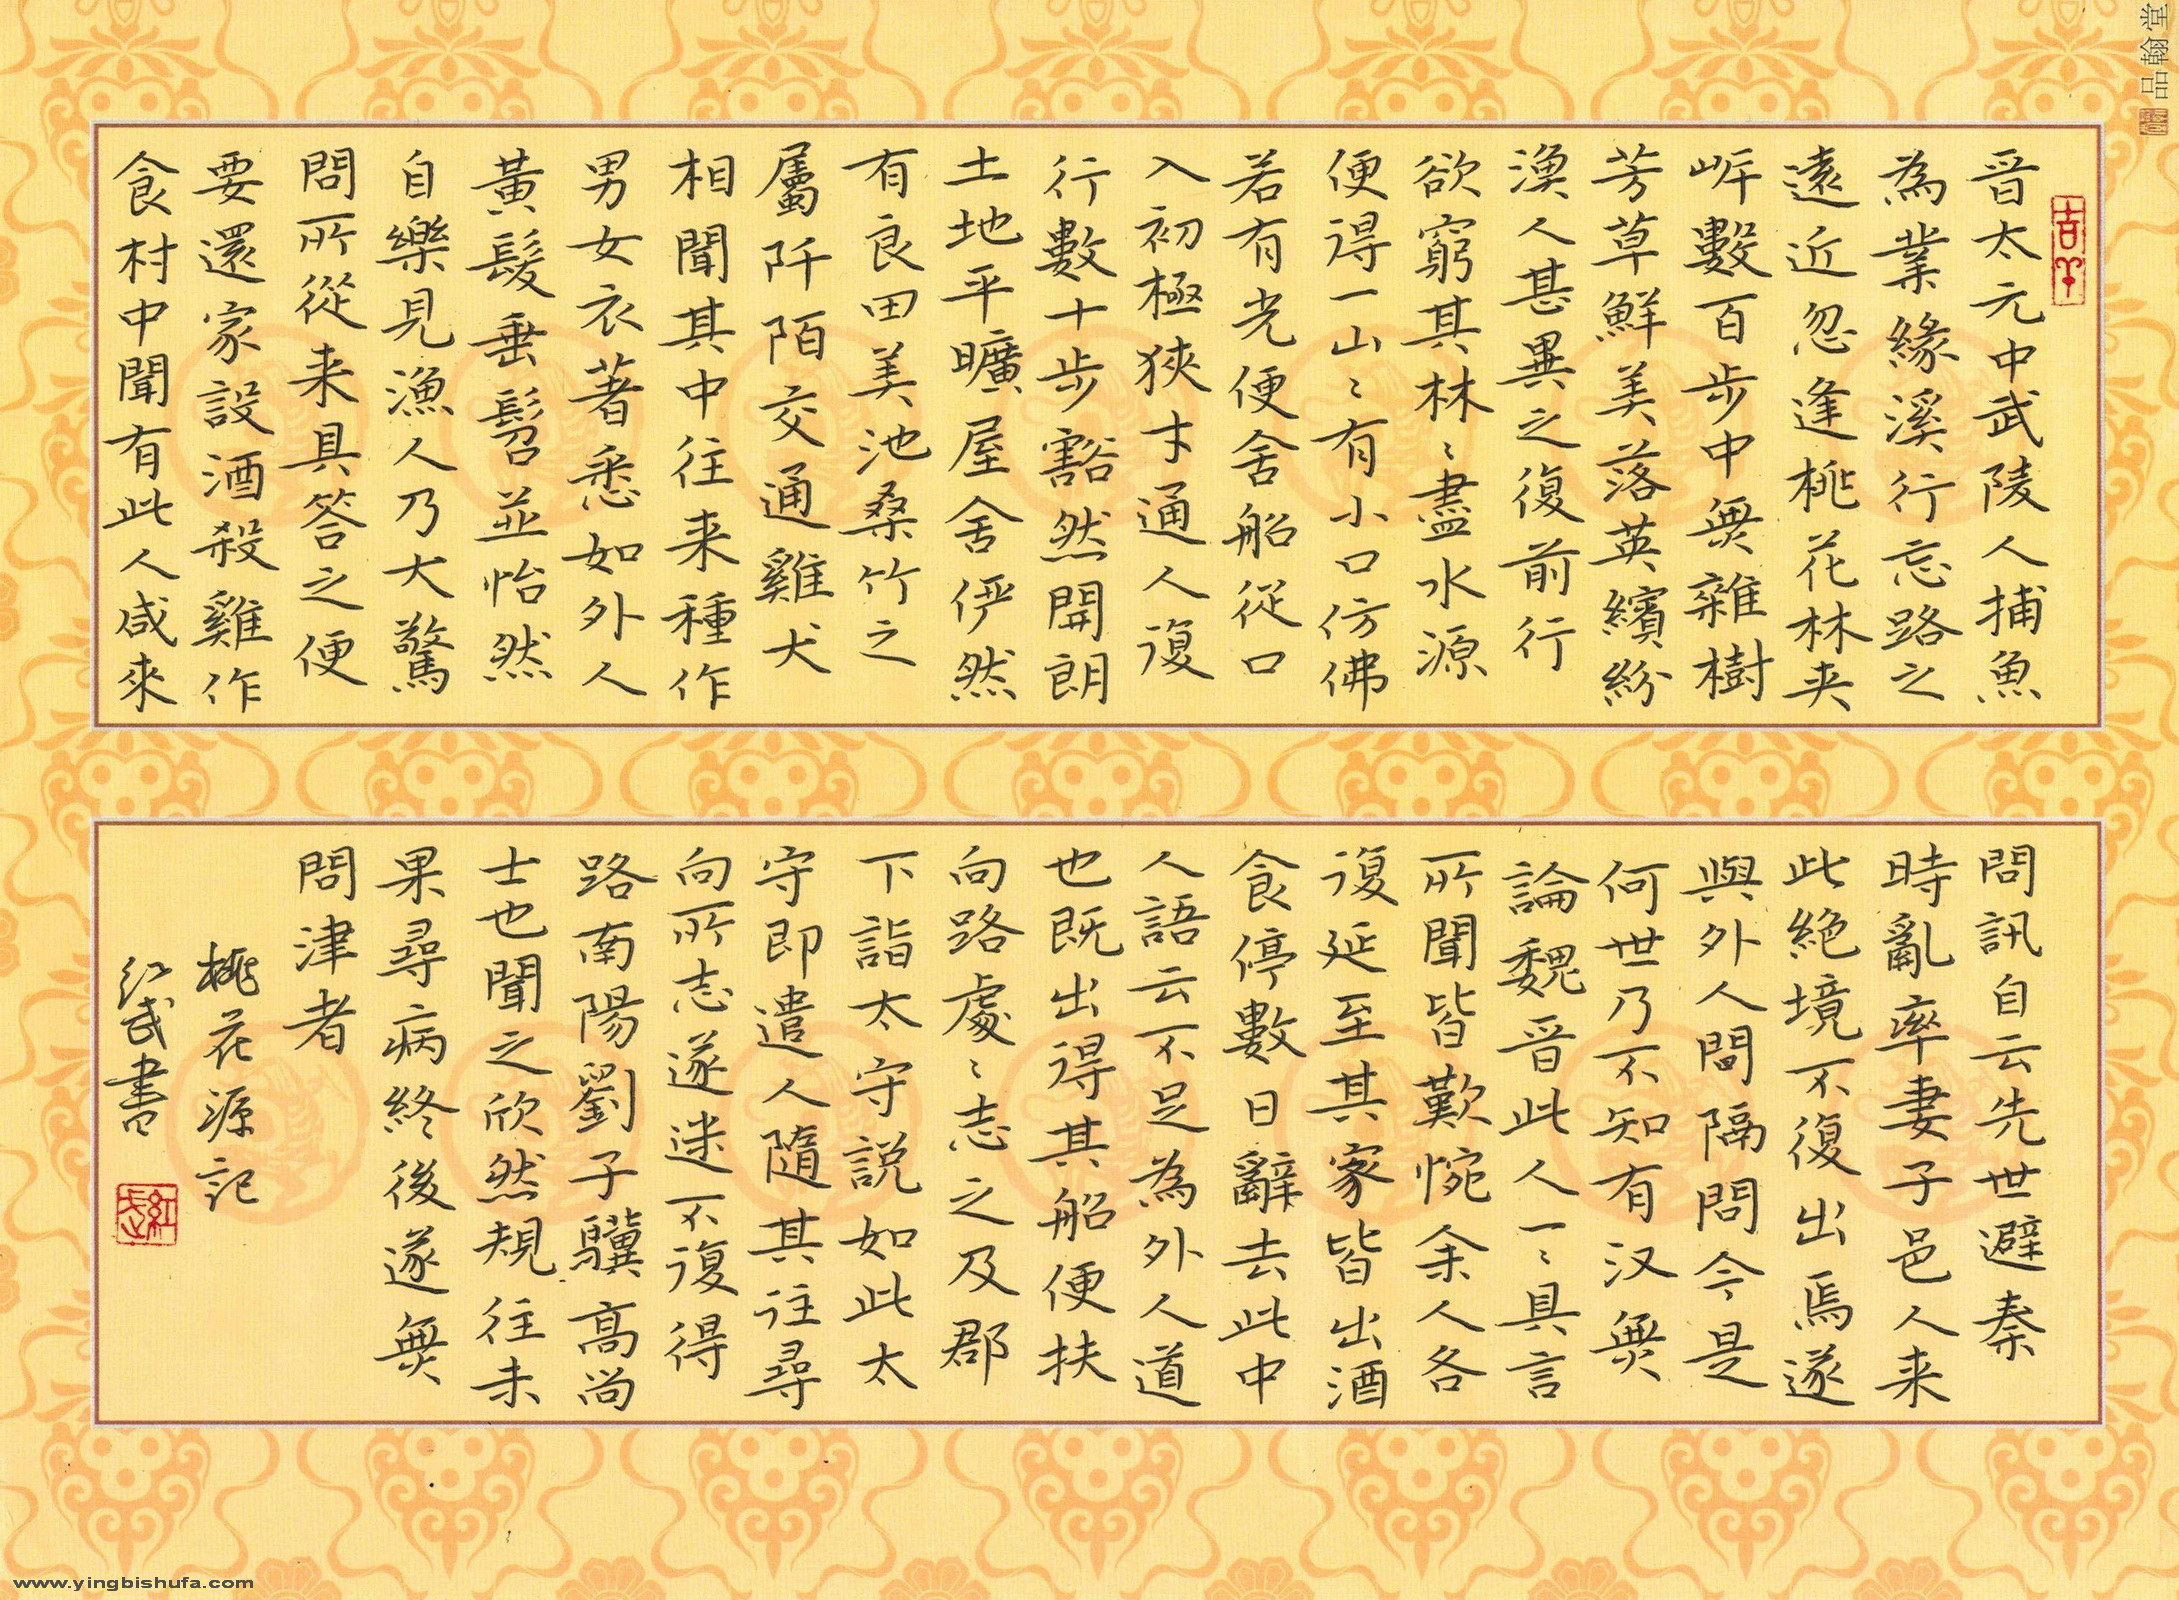 晉太元中武陵人捕魚
為業緣溪行忘路之
遠近忽逢桃花林夾
岸數百步中無雜樹
芳草鮮美落英繽紛
漁人甚異之復前行
欲窮其林〻盡水源
便得一山〻有小口仿佛
若有光便舍船從口
入初極狹才通人復
行數十步豁然開朗
土地平曠屋舍儼然
有良田美池桑竹之
屬阡陌交通雞犬
相聞其中往来種作
男女衣著悉如外人
黃髮垂髫並怡然
自樂見漁人乃大驚
問所從来具答之便
要還家設酒殺雞作
食村中聞有此人咸來
問訊自云先世避秦
時亂率妻子邑人来
此絕境不復出焉遂
與外人間隔問今是
何世乃不知有汉無
論魏晉此人一〻具言
所聞皆歎惋余人各
復延至其家皆出酒
食停數日辭去此中
人語云不足為外人道
也既出得其船便扶
向路處〻志之及郡
下詣太守說如此太
守即遣人隨其往尋
向所志遂迷不復得
路南陽劉子驥高尚
士也聞之欣然規往未
果尋病終後遂無
問津者
桃花源記
紅武書
紅武
吉羊
品翰堂
www.yingbishufa.com